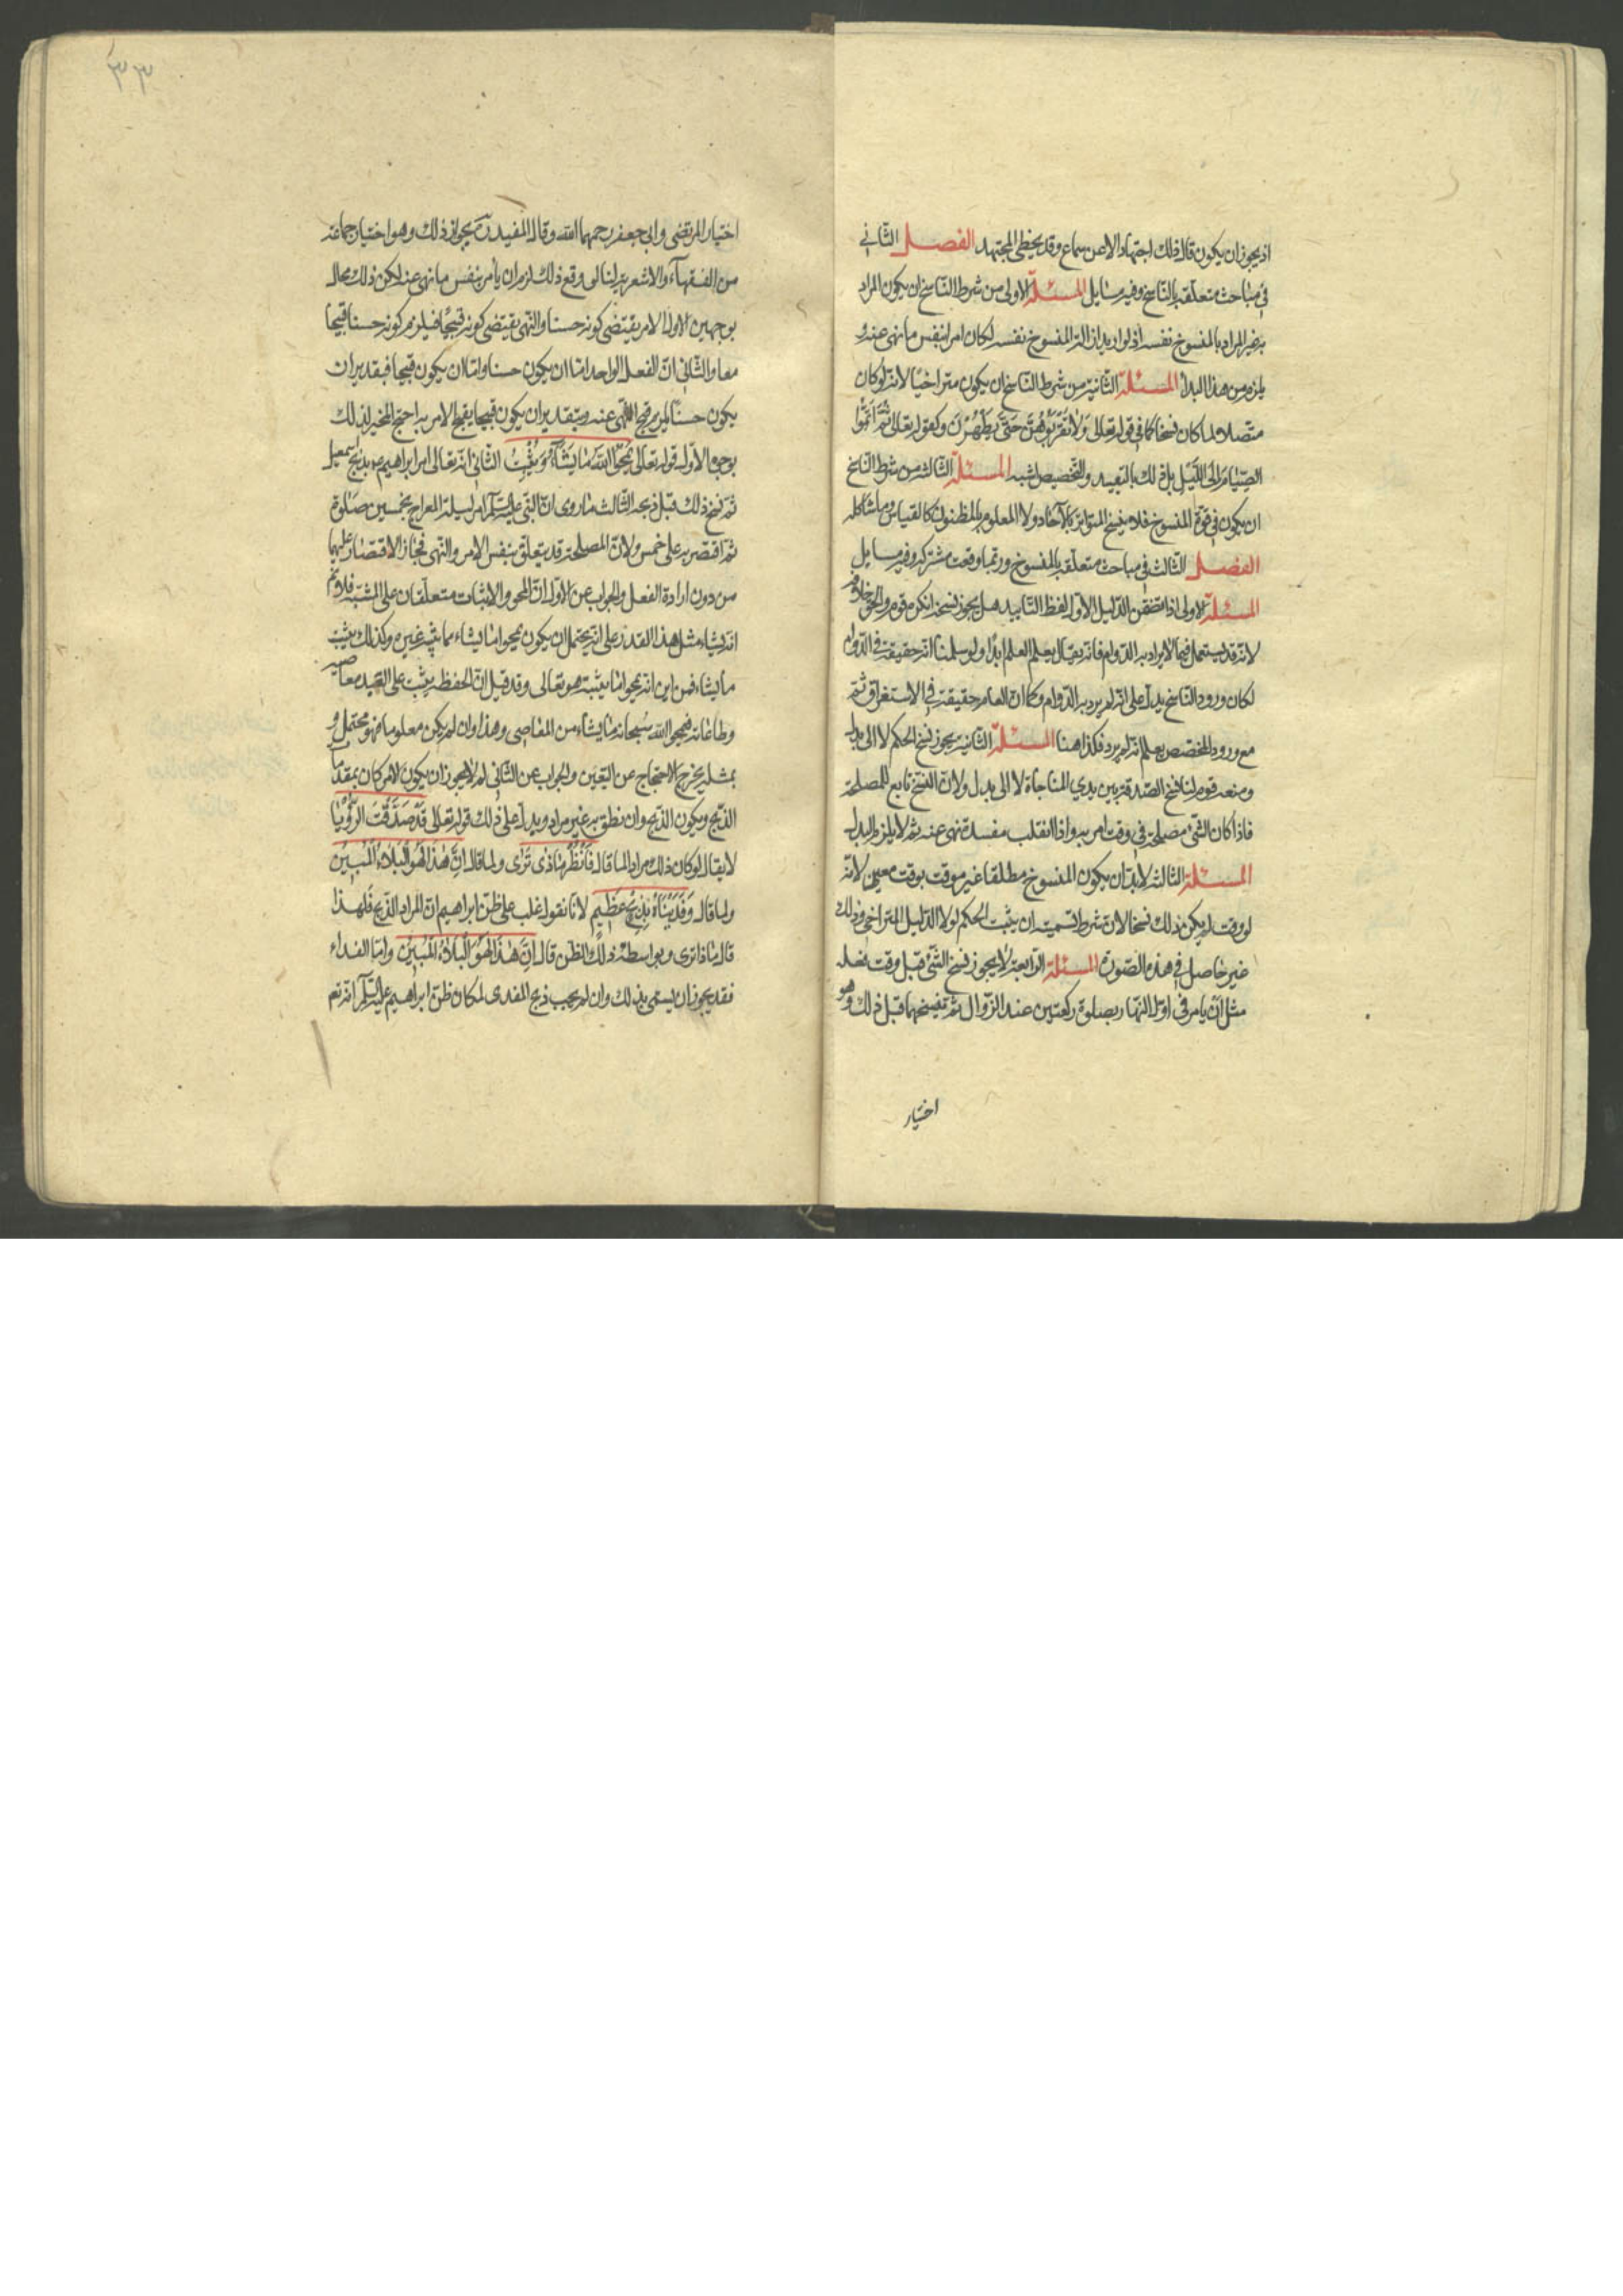 اذ يجوز ان يكون قال ذلك اجتهادا لا عن سماع وقد يخطى المجتهد الفصل الثاني
في مباحث متعلقة بالناسخ وفيه مسايل المسئلة الاولى من شرط الناسخ ان يكون المراد
به غير المراد بالمنسوخ نفسه اذ لو اريد ازالة المنسوخ نفسه لكان امرا بنفس ما نهى عنه و
يلزم من هذا البدأ المسئلة الثانية من شرط الناسخ ان يكون متراخيا لانه لو كان
متصلا لما كان نسخا كما في قوله تعالى وَلَا تَقْرَبُوهُنَّ حَتَّى يَطْهُرْنَ وكقوله تعالى ثُمَّ اَتِمُّوا
الصِّيَامَ اِلَى اللَّيْلِ بل ذلك بالتقييد والتخصيص اشبه المسئلة الثالثة من شرط الناسخ
ان يكون في قوة المنسوخ فلا ينسخ المتواتر بالآحاد ولا المعلوم بالمظنون كالقياس وما شاكله
الفصل الثالث في مباحث متعلقة بالمنسوخ وربما وقعت مشتركة وفيه مسايل
المسئلة الاولى اذا تضمن الدليل الاول لفظ التابيد هل يجوز نسخه انكره قوم والحق خلافه
لانه قد يستعمل فيما لا يراد به الدوام فانه يقال يعلم العلم ابدا ولو سلمنا انه حقيقة في الدوام
لكان ورود الناسخ يدل على انه لم يرد به الدوام وكما ان العام حقيقة في الاستغراق ثم
مع ورود المخصص يعلم انه لم يرد فكذا هنا المسئلة الثانية يجوز نسخ الحكم لا الى بدل
ومنعه قوم لنا نسخ الصدقة بين يدي المناجاة لا الى بدل ولان النسخ تابع للمصلحة
فاذا كان الشئ مصلحة في وقت امر به واذا انقلب مفسدة نهى عنه ثم لا يلزم البدل
المسئلة الثالثة لابد ان يكون المنسوخ مطلقا غير موقت بوقت معين لانه
لو وقت لم يكن ذلك نسخا لان شرط التسمية ان يثبت الحكم لولا الدليل المتراخي وذلك
غير حاصل في هذه الصورة المسئلة الرابعة لا يجوز نسخ الشئ قبل وقت فعله
مثل ان يامر في اول النهار بصلوة ركعتين عند الزوال ثم ينسخهما قبل ذلك وهو
اختيار
٣٣
اختيار المرتضى وابي جعفر رحمهما الله وقال المفيد ره يجواز ذلك وهو اختيار جماعة
من الفقهاء والاشعرية لنا لو وقع ذلك لزم ان يأمر بنفس ما نهى عنه لكن ذلك محال
بوجهين الاول الامر يقتضى كونه حسنا والنهى يقتضى كونه قبيحا فيلزم كونه حسنا قبيحا
معا والثاني ان الفعل الواحد اما ان يكون حسنا واما ان يكون قبيحا فبتقدير ان
يكون حسنا يلزم قبح النهى عنه وبتقدير ان يكون قبيحا يقبح الامر به احتج المخيز لذلك
بوجوه الاول قوله تعالى يَمْحُوا اللهُ مَا يَشَآءُ وَيُثْبِتُ الثاني انه تعالى امر ابراهيم ع بذبح اسمعيل
ثم نسخ ذلك قبل ذبحه الثالث ما روى ان النبي عليه السلم امر ليلة المعراج بخمسين صلوة
ثم اقتصر به على خمس ولان المصلحة قد يتعلق بنفس الامر والنهى فجاز الاقتصار عليهما
من دون ارادة الفعل والجواب عن الاول ان المحو والاثبات متعلقان على المشية فلا نم
انه يشاء مثل هذا القدر على انه يحتمل ان يكون يمحوا ما يشاء مما يثبته غيره وكذلك يثبت
ما يشاء فمن اين انه يمحو ما يثبته هو تعالى وقد قيل ان الحفظة يثبت على العبيد معاصيه
وطاعاته فيمحوا الله سبحانه ما يشاء من المعاصى وهذا وان لم يكن معلوما فهو محتمل و
بمثله يخرج الاحتجاج عن اليقين والجواب عن الثاني لم لا يجوز ان يكون الامر كان بمقدمات
الذبح ويكون الذبح وان نطق به غير مراد ويدل على ذلك قوله تعالى قَدْ صَدَّقْتَ الرُّؤْيَا
لا يقال لو كان ذلك مرادا لما قال فَانْظُرْ مَاذَا تَرَى ولما قال اِنَّ هَذَا لَهُوَ الْبَلَاءُ الْمُبِينُ
ولما قال وَفَدَيْنَاهُ بِذِبْحٍ عَظِيمٍ لانا نقول غلب على ظن ابراهيم ان المراد الذبح فلهذا
قال ماذا ترى وبواسطة ذلك الظن قال اِنَّ هَذَا لَهُوَ الْبَلَاءُ الْمُبِينُ واما الفداء
فقد يجوز ان يسمى بذلك وان لم يجب ذبح المفدى لمكان ظن ابراهيم عليه السلم انه تم